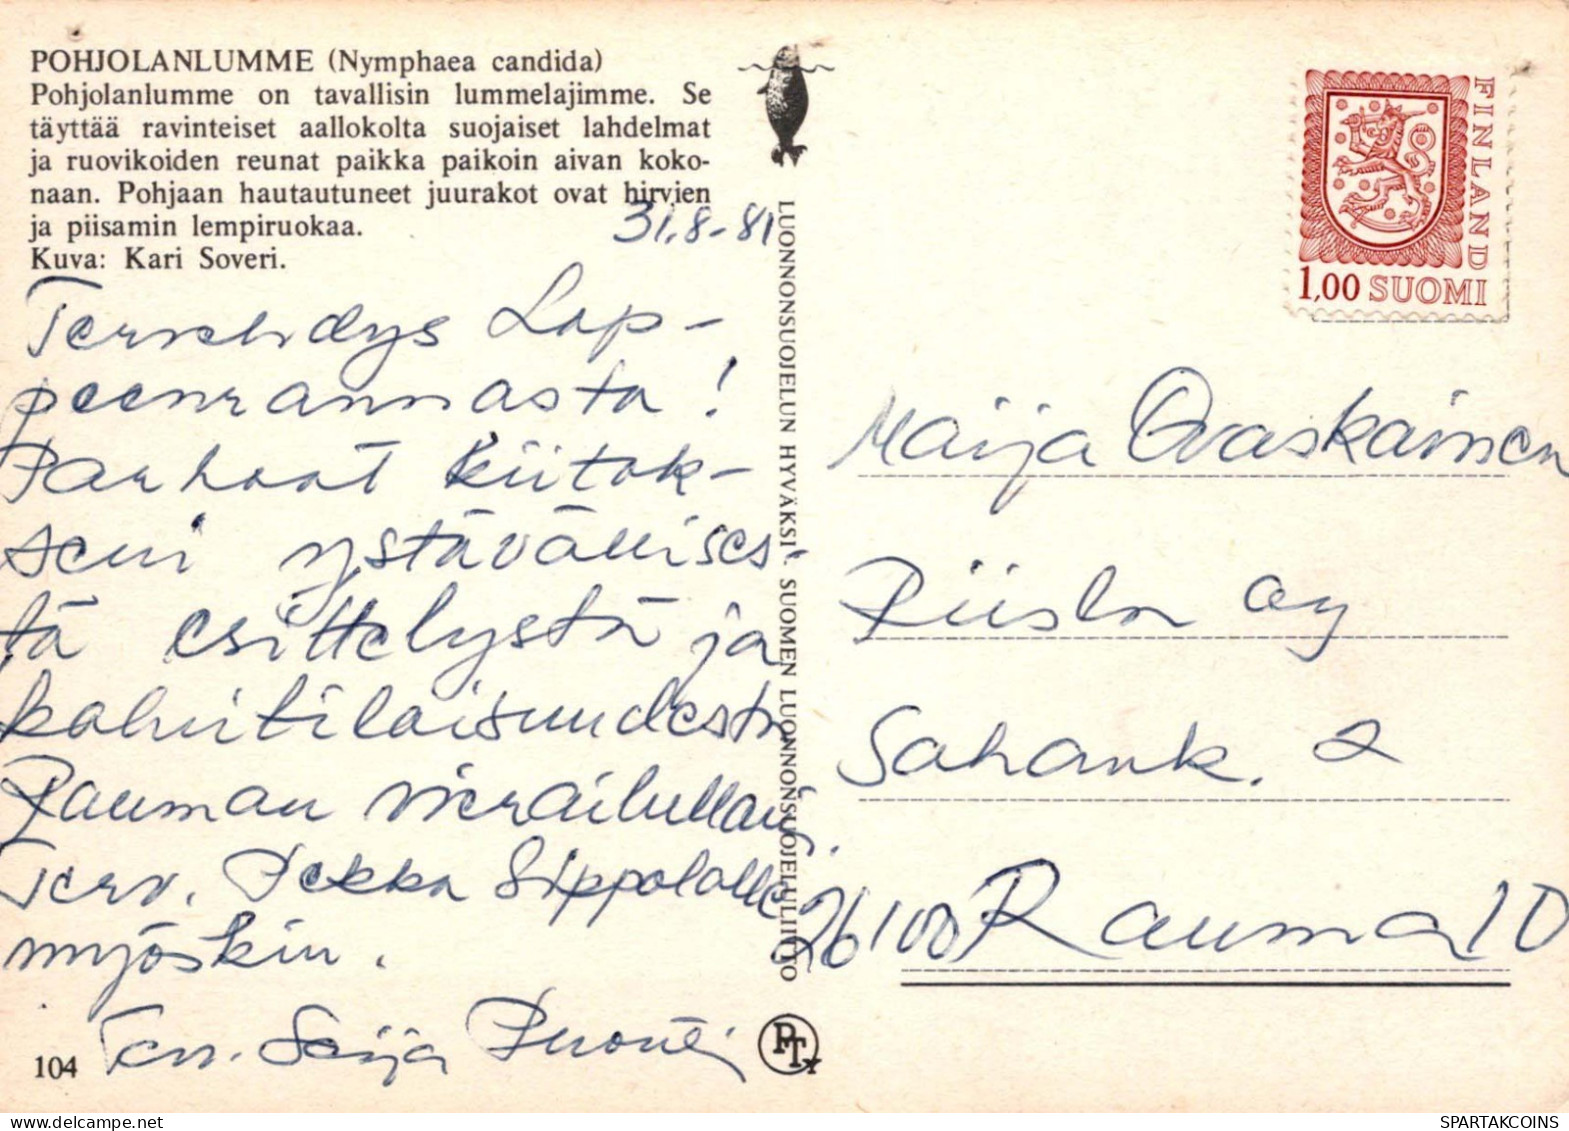 POHJOLANLUMME (Nymphaea candida)
Pohjolanlumme on tavallisin lummelajimme. Se
täyttää ravinteiset aallokolta suojaiset lahdelmat
ja ruovikoiden reunat paikka paikoin aivan koko-
naan. Pohjaan hautautuneet juurakot ovat hirvien
ja piisamin lempiruokaa.
Kuva: Kari Soveri.
31.8-81
Tervehdys Lap-
peenrannasta!
Parhaat kiitok-
seni ystävällises-
tä esittelystä ja
kahvitilaisuudesta
Rauman vierailullani.
Terv. Pekka Sippolalle
myöskin.
Terv. Seija
104
LUONNONSUOJELUN HYVÄKSI - SUOMEN LUONNONSUOJELULIITTO
PT
FINLAND
1,00 SUOMI
Maija Ovaskainen
Riisla Oy
Sahank. 2
26100 Rauma 10
SPARTAKCOINS